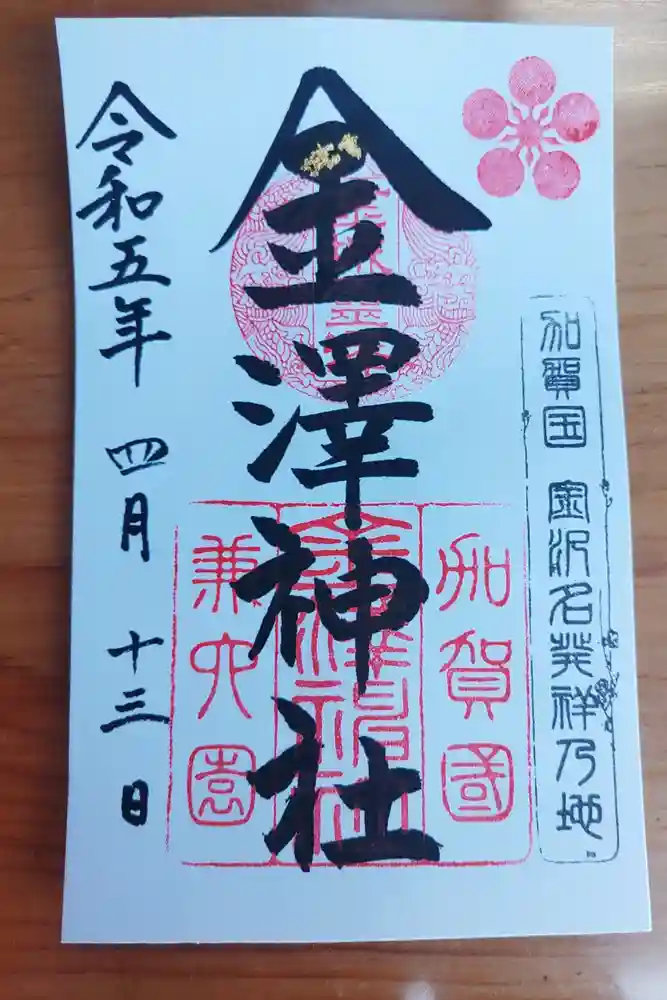 加賀国 金沢名発祥乃地
金澤神社
加賀國
金澤神社
兼六園
令和五年 四月 十三日